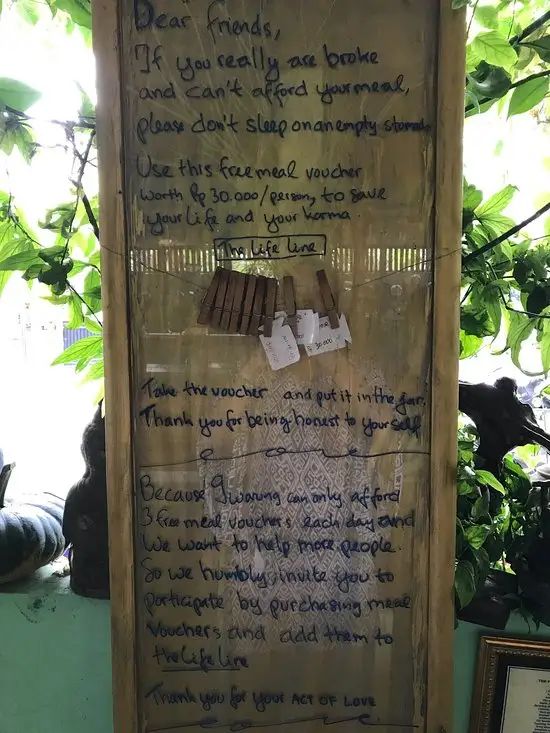 Dear friends,
If you really are broke
and can't afford your meal,
please don't sleep on an empty stomach
Use this free meal voucher
worth Rp 30.000/person, to save
your life and your karma.
The life line
30.000
Take the voucher and put it in the jar.
Thank you for being honest to your self
Because 9 warung can only afford
3 free meal vouchers each day and
We want to help more people.
So we humbly invite you to
participate by purchasing meal
vouchers and add them to
the life line
Thank you for your ACT OF LOVE